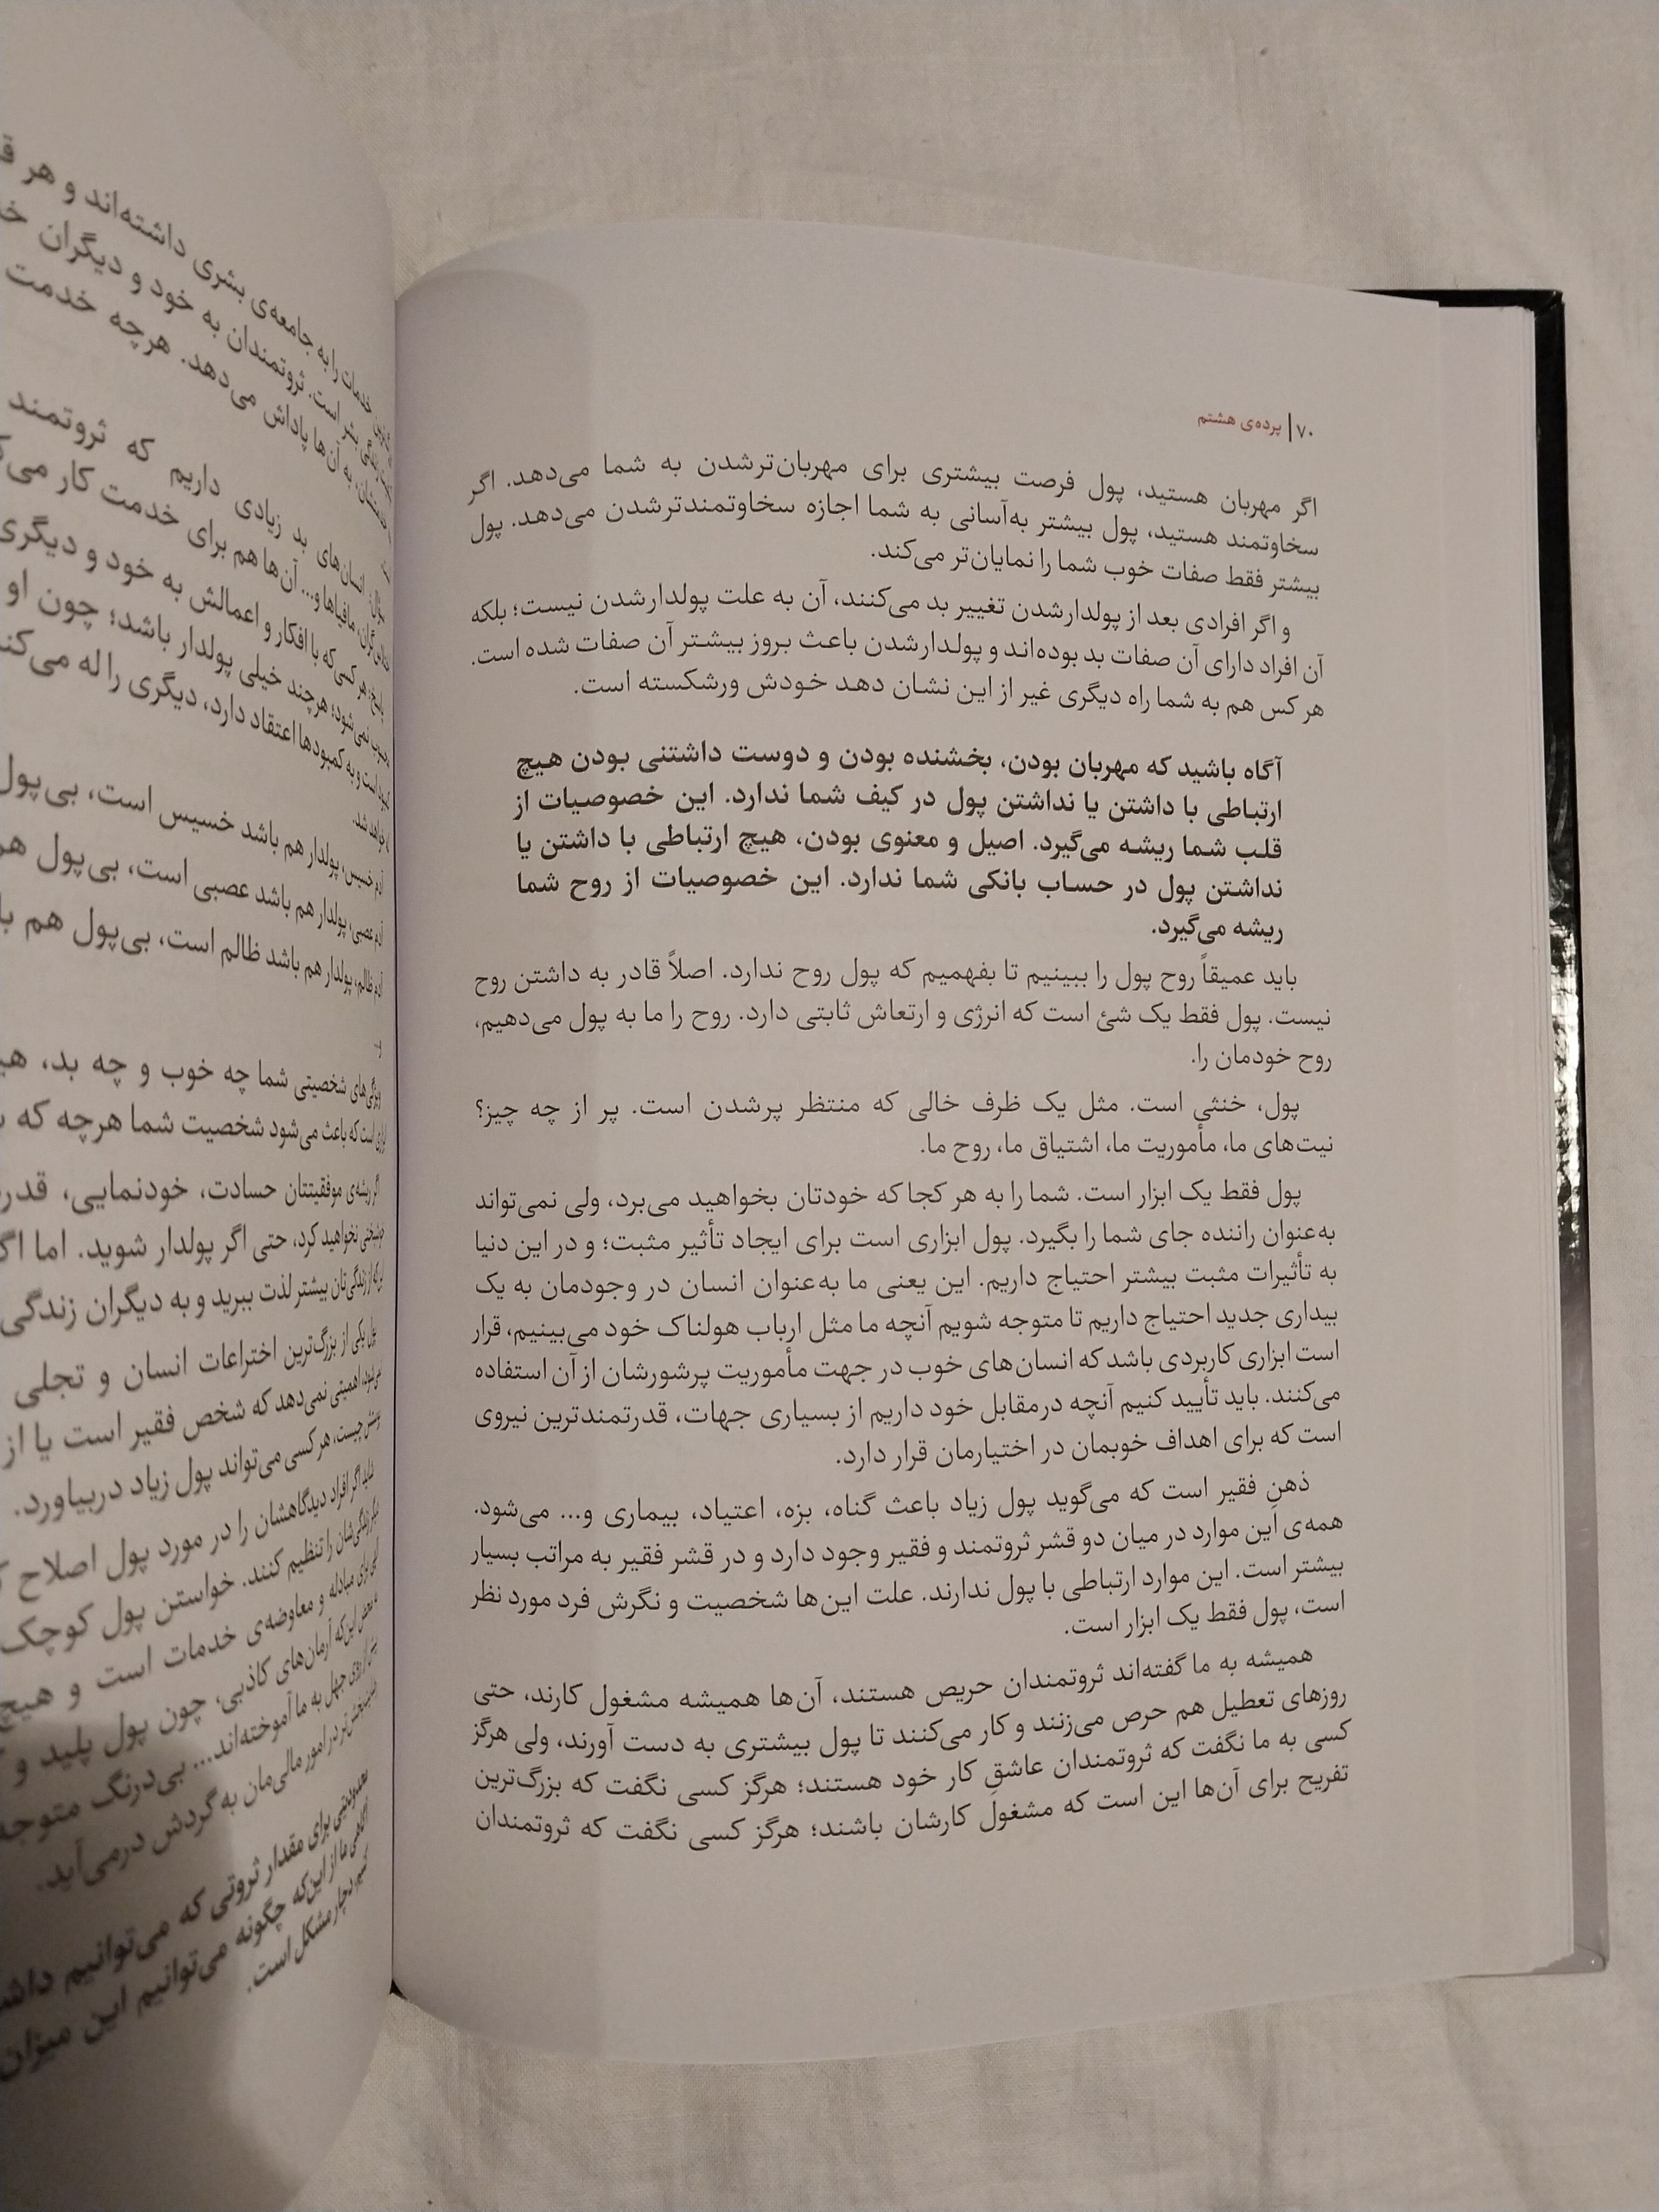 ۷۰ | پرده‌ی هشتم
اگر مهربان هستید، پول فرصت بیشتری برای مهربان‌ترشدن به شما می‌دهد. اگر
سخاوتمند هستید، پول بیشتر به‌آسانی به شما اجازه سخاوتمندترشدن می‌دهد. پول
بیشتر فقط صفات خوب شما را نمایان‌تر می‌کند.
و اگر افرادی بعد از پولدارشدن تغییر بد می‌کنند، آن به علت پولدارشدن نیست؛ بلکه
آن افراد دارای آن صفات بد بوده‌اند و پولدارشدن باعث بروز بیشتر آن صفات شده است.
هر کس هم به شما راه دیگری غیر از این نشان دهد خودش ورشکسته است.
آگاه باشید که مهربان بودن، بخشنده بودن و دوست داشتنی بودن هیچ
ارتباطی با داشتن یا نداشتن پول در کیف شما ندارد. این خصوصیات از
قلب شما ریشه می‌گیرد. اصیل و معنوی بودن، هیچ ارتباطی با داشتن یا
نداشتن پول در حساب بانکی شما ندارد. این خصوصیات از روح شما
ریشه می‌گیرد.
باید عمیقاً روح پول را ببینیم تا بفهمیم که پول روح ندارد. اصلاً قادر به داشتن روح
نیست. پول فقط یک شئ است که انرژی و ارتعاش ثابتی دارد. روح را ما به پول می‌دهیم،
روح خودمان را.
پول، خنثی است. مثل یک ظرف خالی که منتظر پرشدن است. پر از چه چیز؟
نیت‌های ما، مأموریت ما، اشتیاق ما، روح ما.
پول فقط یک ابزار است. شما را به هر کجا که خودتان بخواهید می‌برد، ولی نمی‌تواند
به‌عنوان راننده جای شما را بگیرد. پول ابزاری است برای ایجاد تأثیر مثبت؛ و در این دنیا
به تأثیرات مثبت بیشتر احتیاج داریم. این یعنی ما به‌عنوان انسان در وجودمان به یک
بیداری جدید احتیاج داریم تا متوجه شویم آنچه ما مثل ارباب هولناک خود می‌بینیم، قرار
است ابزاری کاربردی باشد که انسان‌های خوب در جهت مأموریت پرشورشان از آن استفاده
می‌کنند. باید تأیید کنیم آنچه درمقابل خود داریم از بسیاری جهات، قدرتمندترین نیروی
است که برای اهداف خوبمان در اختیارمان قرار دارد.
ذهنِ فقیر است که می‌گوید پول زیاد باعث گناه، بزه، اعتیاد، بیماری و... می‌شود.
همه‌ی این موارد در میان دو قشر ثروتمند و فقیر وجود دارد و در قشر فقیر به مراتب بسیار
بیشتر است. این موارد ارتباطی با پول ندارند. علت این‌ها شخصیت و نگرش فرد مورد نظر
است، پول فقط یک ابزار است.
همیشه به ما گفته‌اند ثروتمندان حریص هستند، آن‌ها همیشه مشغول کارند، حتی
روزهای تعطیل هم حرص می‌زنند و کار می‌کنند تا پول بیشتری به دست آورند، ولی هرگز
کسی به ما نگفت که ثروتمندان عاشقِ کار خود هستند؛ هرگز کسی نگفت که بزرگ‌ترین
تفریح برای آن‌ها این است که مشغول کارشان باشند؛ هرگز کسی نگفت که ثروتمندان
را به جامعه‌ی بشری داشته‌اند و هر
است. ثروتمندان به خود و دیگران
به آن‌ها پاداش می‌دهد. هرچه خدمت
انسان‌های بد زیادی داریم که ثروتمند
مافیاها و... آن‌ها هم برای خدمت کار
هر کسی که با افکار و اعمالش به خود و دیگری
نمی‌شود؛ هرچند خیلی پولدار باشد؛ چون او
است و به کمبودها اعتقاد دارد، دیگری را له
آدم خسیس، پولدار هم باشد خسیس است، بی‌پول
آدم عصبی، پولدار هم باشد عصبی است، بی‌پول
آدم ظالم، پولدار هم باشد ظالم است، بی‌پول هم
شخصیتی شما چه خوب و چه بد،
است که باعث می‌شود شخصیت شما هرچه که
اگر ریشه‌ی موفقیتتان حسادت، خودنمایی،
نخواهید کرد، حتی اگر پولدار شوید. اما
زندگی‌تان بیشتر لذت ببرید و به دیگران زندگی
پول یکی از بزرگ‌ترین اختراعات انسان و تجلی
اهمیتی نمی‌دهد که شخص فقیر است یا از
چیست، هر کسی می‌تواند پول زیاد دربیاورد.
شاید اگر افراد دیدگاهشان را در مورد پول اصلاح
زندگی‌شان را تنظیم کنند. خواستن پول کوچک
برای مبادله و معاوضه‌ی خدمات است و هیچ
این‌که آرمان‌های کاذبی، چون پول پلید و
جهل به ما آموخته‌اند... بی‌درنگ متوجه
در امور مالی‌مان به گردش درمی‌آید.
برای مقدار ثروتی که می‌توانیم
ما از این‌که چگونه می‌توانیم این میزان
دچار مشکل است.